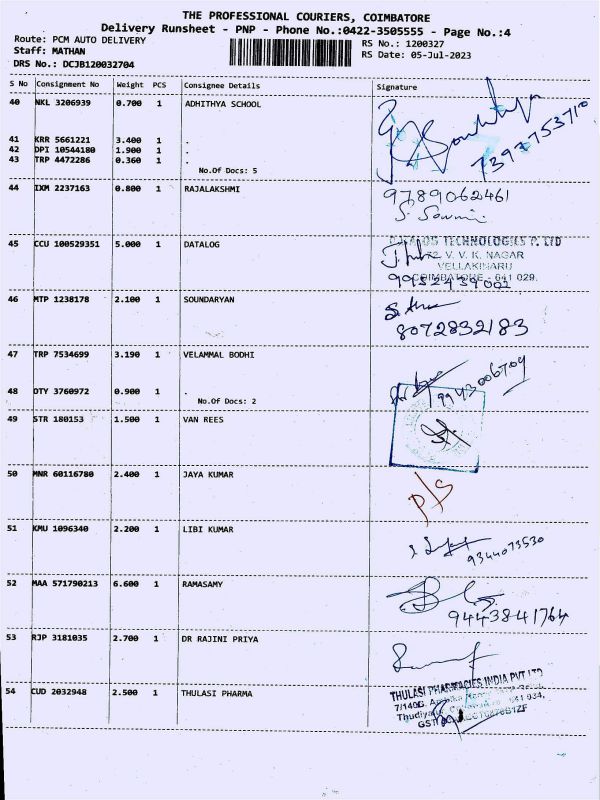 THE PROFESSIONAL COURIERS, COIMBATORE
Delivery Runsheet - PNP - Phone No.:0422-3505555 - Page No.:4
Route: PCM AUTO DELIVERY
RS No.: 1200327
Staff: MATHAN
RS Date: 05-Jul-2023
DRS No.: DCJB120032704
S No Consignment No Weight PCS Consignee Details Signature
40 NKL 3206939 0.700 1 ADHITHYA SCHOOL
7397753710
41 KRR 5661221 3.400 1 .
42 DPI 10544180 1.900 1 .
43 TRP 4472286 0.360 1 .
No.Of Docs: 5
44 IXM 2237163 0.800 1 RAJALAKSHMI
9789062461
45 CCU 100529351 5.000 1 DATALOG
TECHNOLOGIES P. LTD
72, V. V. K. NAGAR
VELLAKINARU
COIMBATORE - 641 029.
46 MTP 1238178 2.100 1 SOUNDARYAN
8072832183
47 TRP 7534699 3.190 1 VELAMMAL BODHI
9943006709
48 DTY 3760972 0.900 1 .
No.Of Docs: 2
49 STR 180153 1.500 1 VAN REES
50 MNR 60116780 2.400 1 JAYA KUMAR
P/S
51 KMU 1096340 2.200 1 LIBI KUMAR
9344073530
52 MAA 571790213 6.600 1 RAMASAMY
9443841764
53 RJP 3181035 2.700 1 DR RAJINI PRIYA
54 CUD 2032948 2.500 1 THULASI PHARMA
THULASI PHARMACIES INDIA PVT LTD